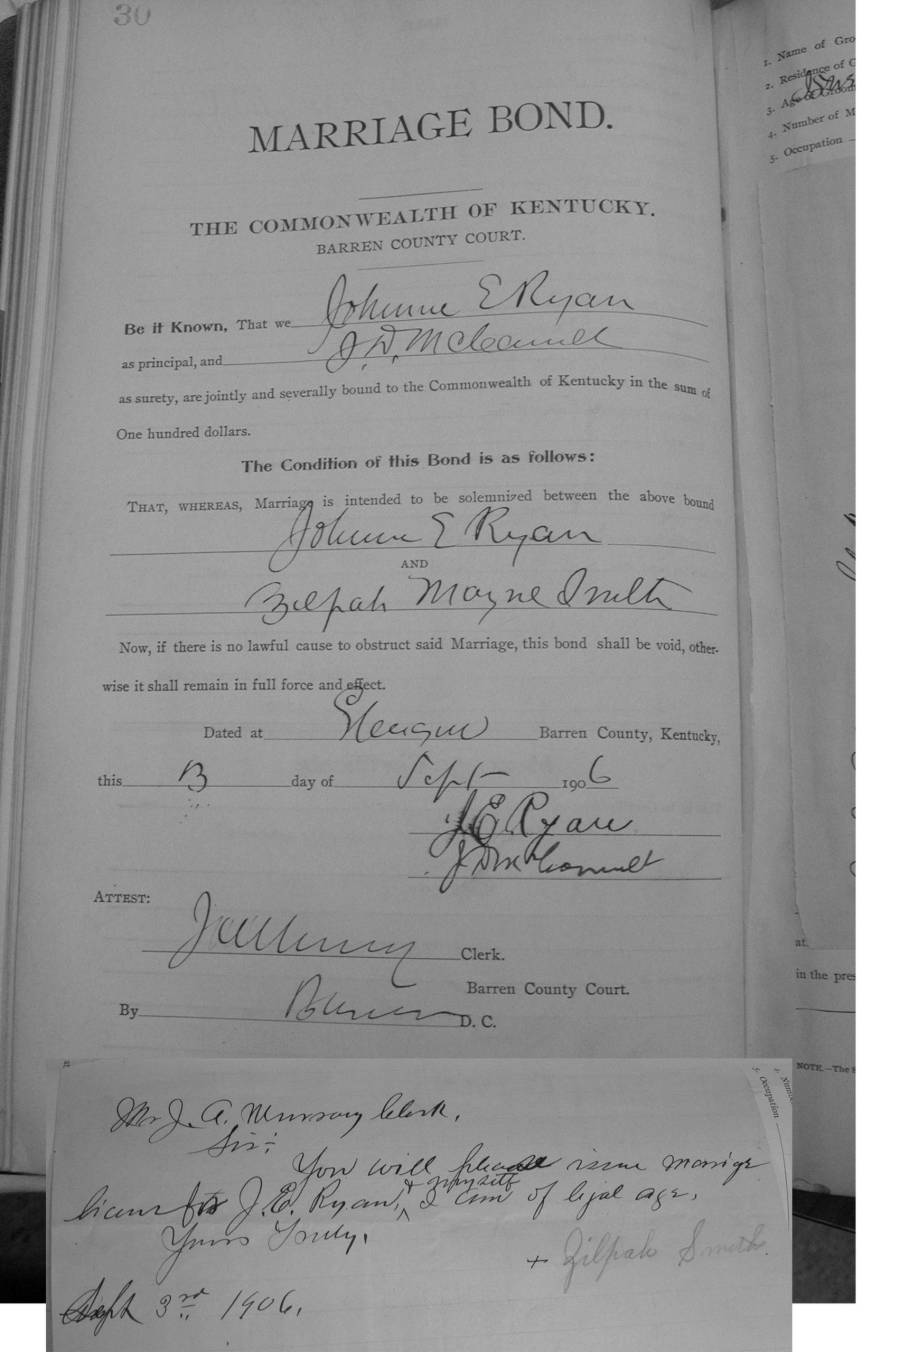 30
MARRIAGE BOND.
THE COMMONWEALTH OF KENTUCKY.
BARREN COUNTY COURT.
Be it Known, That we Johnnie E Ryan
as principal, and J. D. McConnell
as surety, are jointly and severally bound to the Commonwealth of Kentucky in the sum of
One hundred dollars.
The Condition of this Bond is as follows:
THAT, WHEREAS, Marriage is intended to be solemnized between the above bound
Johnnie E Ryan
AND
Zilpah Mayne Smith
Now, if there is no lawful cause to obstruct said Marriage, this bond shall be void, other-
wise it shall remain in full force and effect.
Dated at Glasgow Barren County, Kentucky,
this day of Sept 1906
J. E. Ryan
J D McConnell
ATTEST:
Clerk.
Barren County Court.
By D. C.
Mr J. A. Murray Clerk.
Sir:
You will please issue marrige
licens for J. E. Ryan, + myself I am of legal age.
Yours Truly,
+ Zilpah Smith.
Sept 3rd 1906.
1. Name of Gro
2. Residence of G
3. Age of Groom
4. Number of M
5. Occupation
at
in the pres
NOTE.—The
5. Occupation